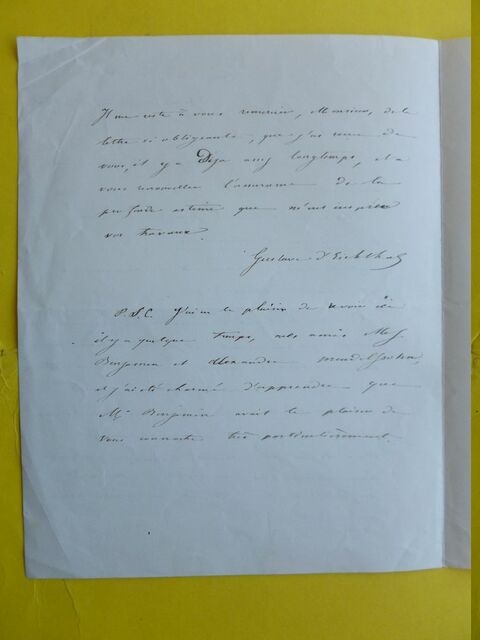 Il me reste à vous remercier, Monsieur, de la
lettre si obligeante, que j'ai reçue de
vous, il y a Déjà assez longtemps, et à
vous renouveller l'assurance de la
profonde estime que m'ont inspirée
vos travaux.
Gustave d'Eichthal
P.S. J'ai eu le plaisir de revoir ici
il y a quelque temps, mes amis MM.
Benjamin et Alexandre Mendelssohn,
et j'ai été charmé d'apprendre que
Mr Benjamin avait le plaisir de
vous connaître très particulièrement.